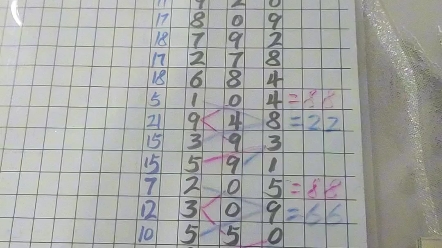 17 8 0 9
18 7 9 2
17 2 7 8
18 6 8 4
5 1 0 4 =88
21 9 4 8 =22
15 3 9 3
15 5 9 1
7 2 0 5 =88
12 3 0 9 =66
10 5 5 0